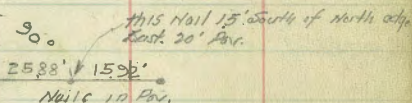 this Nail 15' South of North edge
East. 20' Pav.
90°
25.88' 15.92'
Nails in Pav.